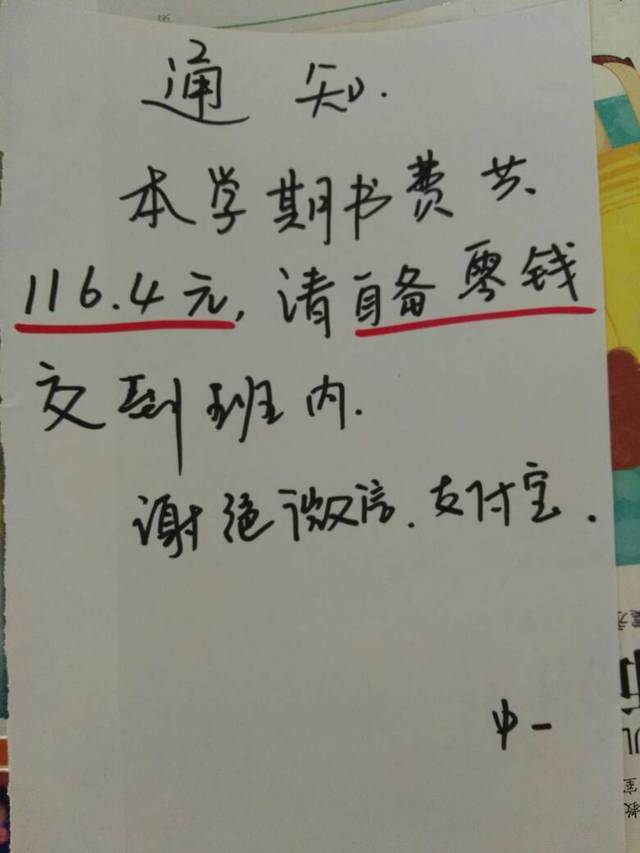 通知.
本学期书费共
116.4元,请自备零钱
交到班内.
谢绝微信.支付宝.
中一
儿
教室